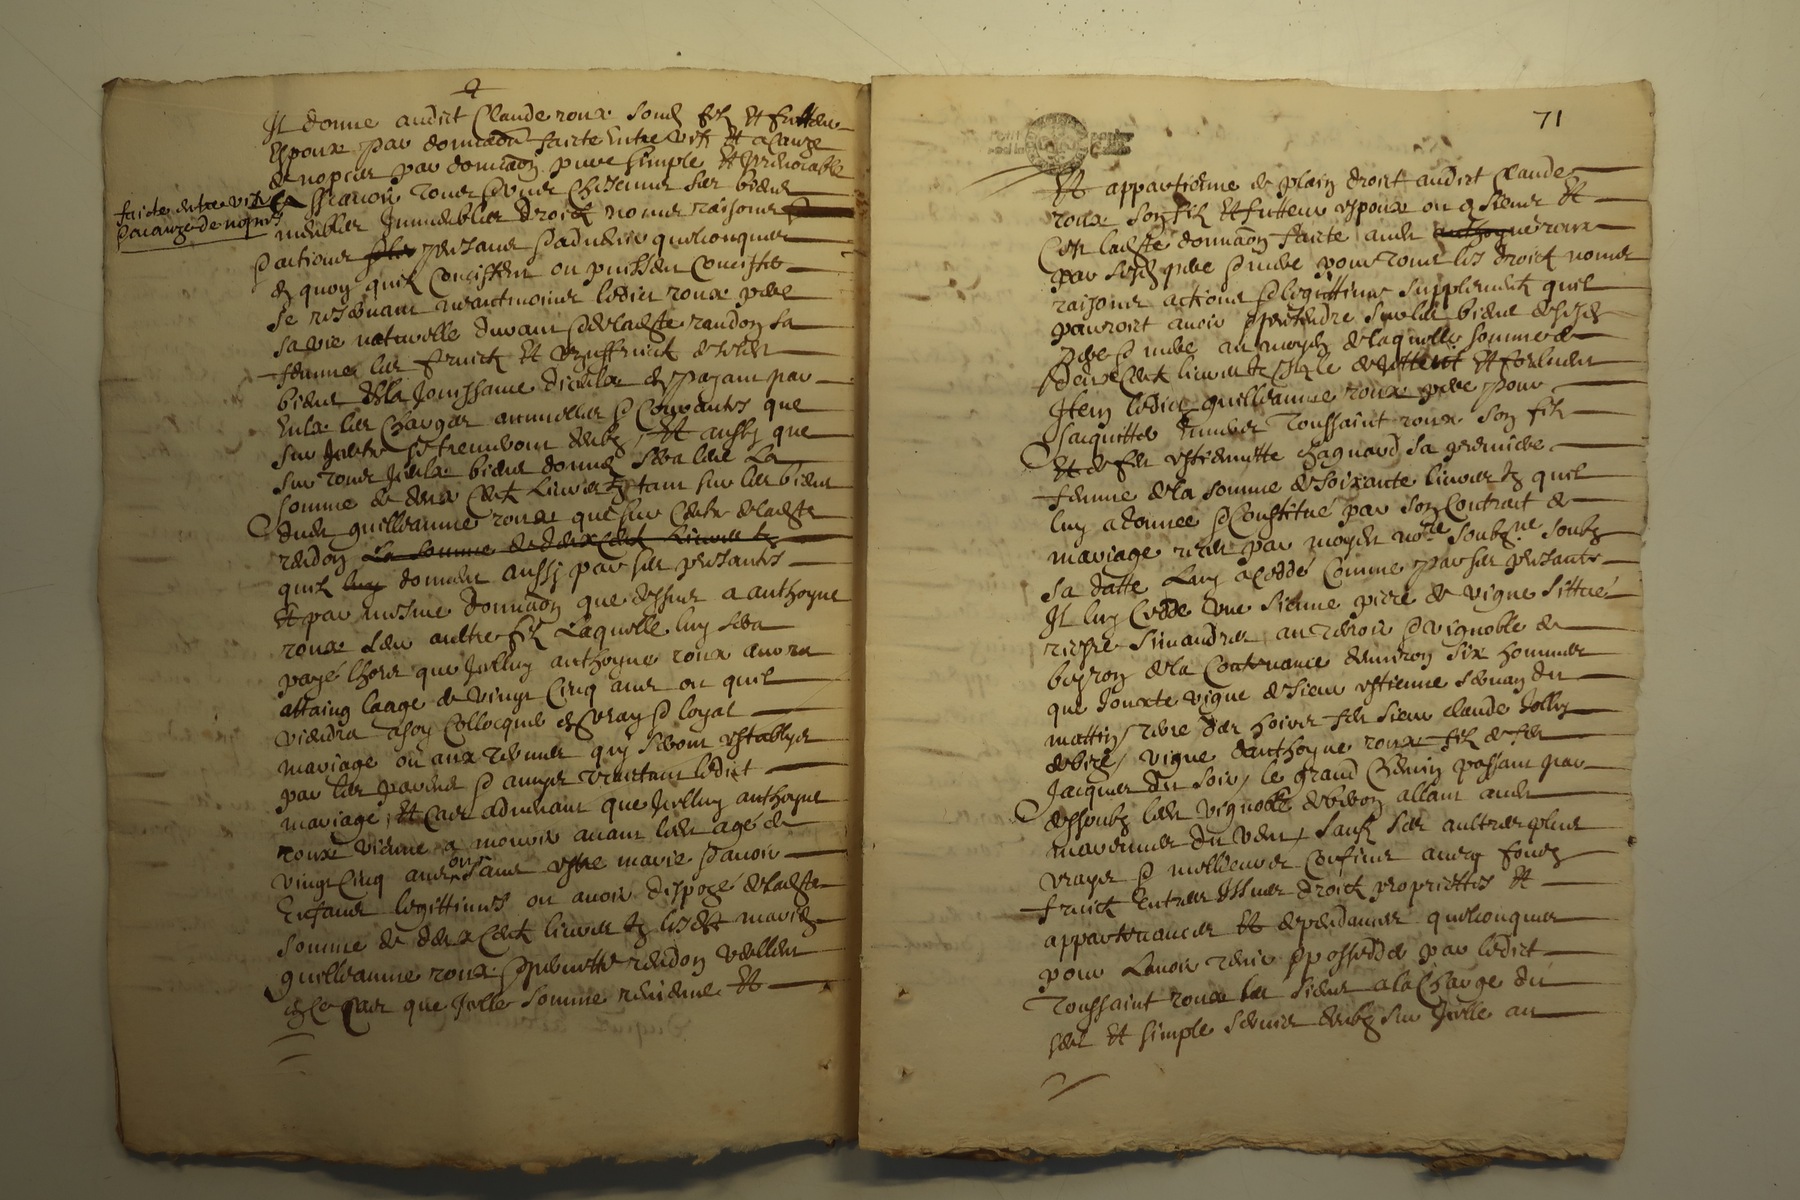 Il donne audict Claude roux sond filz et futteur
Espoux par donnaon faicte Entre vifz et a cauze
de nopces par donnaon pure simple et Irrevocable
faicte entre vifz
& a cauze de nopces
Assavoir tous & ungs chescungs ses biens
meubles Immeubles droictz noms raisons
& actions presans & advenir quelconques
en quoy quilz concistent ou puissent concister
se reservant neantmoings ledict roux pere
sa vie naturelle durant & de ladte randon sa
femme les fruictz et uzuffruictz desdts
biens & la Jouissance diceulx en payant par
Eulx les charges annuelles & courantes que
sur Iceulx se treuveront deubz Et aussy que
sur tous Iceulx biens donnes sera leue La
somme de deux centz Livres tz tant sur les biens
dudt guilleaume roux que sur ceulx de ladte
rendon La somme de deux centz Livres tz
quilz luy donnent aussj par ses presantes
Et par mesme donnaon que dessus a anthoyne
roux leur aultre filz Laquelle luy sera
payé lhors que Icelluy anthoyne roux aura
attaing laage de vingt cinq ans ou quil
viendra a soy collocquer en vray & loyal
mariage ou aux termes quy seront establys
par les parens & amys traictant ledict
mariage, et cas advenant que Icelluy anthoyne
roux vienne a mourir avant ledt agé de
vingt cinq ans ou sans estre marié & avoir
Enfans legittimes ou avoir dispozé de ladte
somme de deux centz livres tz lesdtz mariez
guilleaume roux & pernette rendon veullent
en ce cas que Icelle somme revienne et
71
Et appartienne de plain droict audict Claude
roux son filz et futteur espoux ou es siens et
Est ladte donnaon faicte audt anthoyne roux
par sesdz pere & mere pour tous les droictz noms
raisons actions & legittimes supplement quil
pourroit avoir & prethendre sur les biens de sesdz
pere & mere au moyen de laquelle somme de
deux centz livres tz
Item ledict guilleaume roux pere pour
sacquitter envers Toussaint roux son filz
Et de feu estiennette chagnard sa premiere
femme de la somme de soixante livres tz quil
luy a donnee & constitué par son contract de
mariage receu par moyen nore soubzne soubz
sa datte Luy a ceddé comme par ses presantes
Il luy cedde une sienne piece de vigne sittué
riepre simandres au terroir & vignoble de
beyron de la contenance denviron six hommes
que Jouxte vigne de sieur estienne servan du
mattin, terre des hoirs feu sieur claude Jolly
de bize, vigne danthoyne roux filz de feu
Jacques du soir, le grand chemin passant par
dessoubz ledt vignoble de beron allant audt
mavennes du vent, sauf ses aultres plus
vrayes & melleures confins avecq fondz
fruictz Entrees Issues droictz proprietes et
appartenances et deppendances quelconques
pour Lavoir tenir & posseder par ledict
Toussaint roux les siens a la charge du
sert et simple servis deubz sur Icelle au